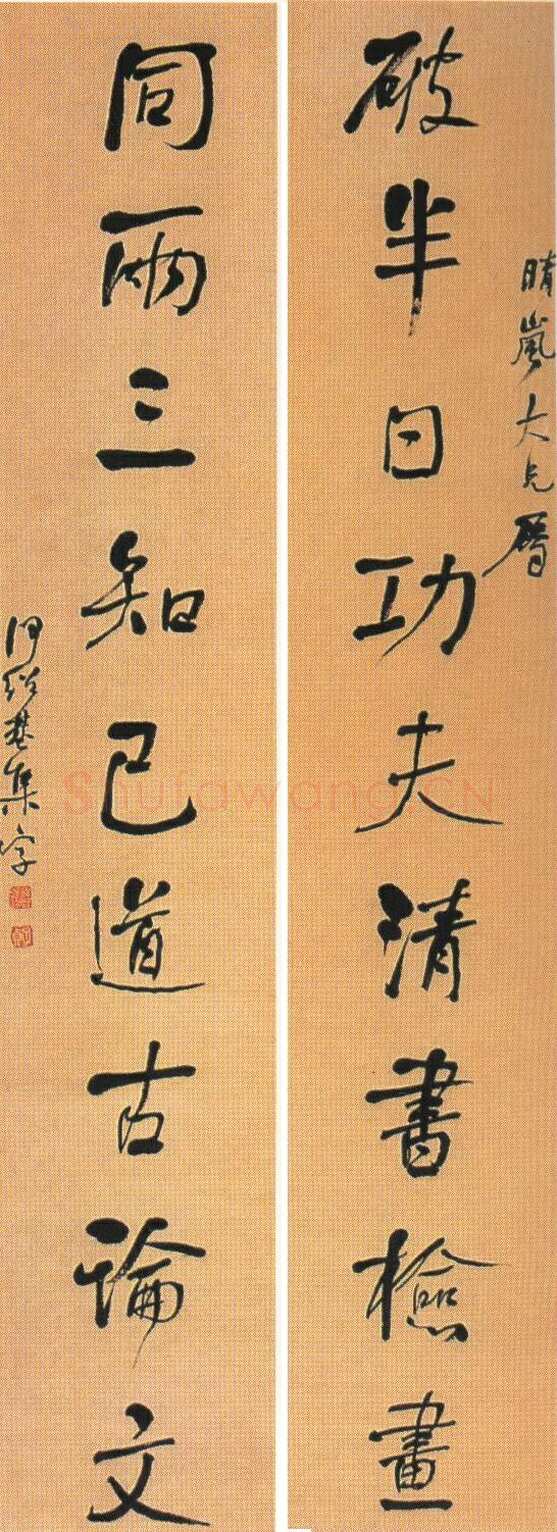 晴嵐大兄屬
破半日功夫清書檢畫
同兩三知己道古論文
何紹基集字
Shufawang.CN